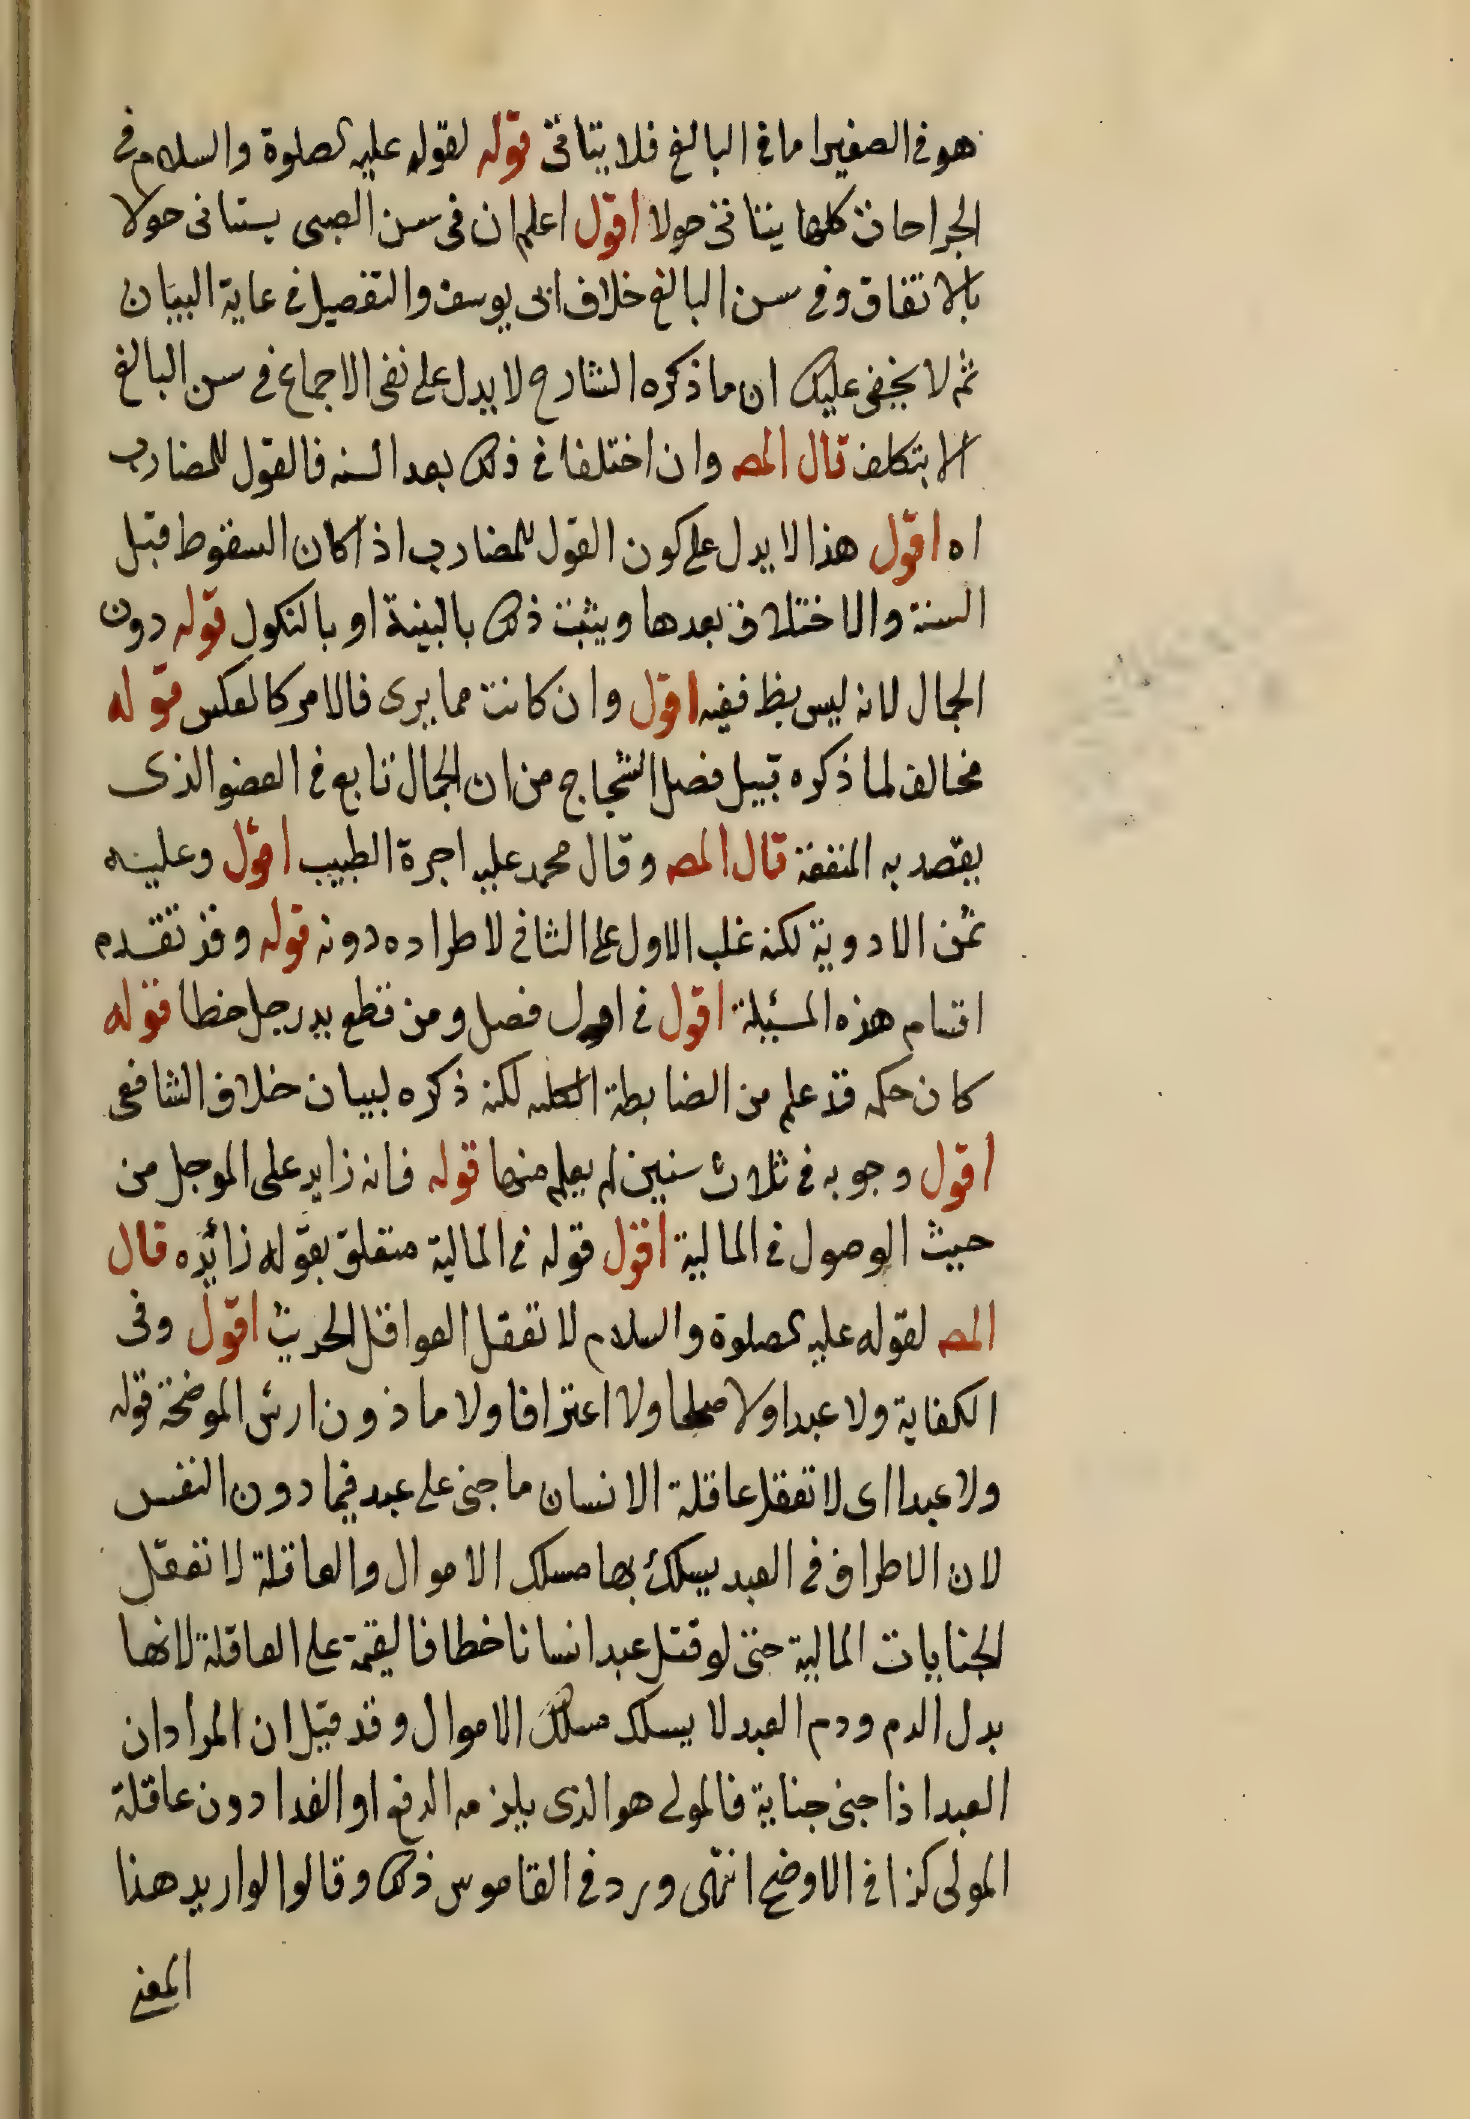 هو فى الصغير اما فى البالغ فلا يتانى قوله لقوله عليه الصلوة والسلام فى
الجراحات كلها يتانى حولا اقول اعلم ان فى سن الصبى يستانى حولا
بالاتفاق وفى سن البالغ خلاف ابى يوسف والتفصيل فى غاية البيان
ثم لا يخفى عليك ان ما ذكره الشارح لا يدل على نفى الاجماع فى سن البالغ
الا بتكلف قال المص وان اختلفا فى ذلك بعد السنه فالقول للضارب
اه اقول هذا لا يدل على كون القول للضارب اذا كان السقوط قبل
السنة والاختلاف بعدها ويثبت ذلك بالبينة او بالنكول قوله دون
الجمال لانه ليس بظ ففيه اقول وان كانت مما يرى فالامر كالعكس قوله
مخالف لما ذكره قبيل فصل الشجاج من ان الجمال تابع فى العضو الذى
يقصد به المنفعة قال المص وقال محمد عليه اجرة الطبيب اقول وعليه
ثمن الادوية لكنه غلب الاول على الثانى لاطراده دونه قوله وقد تقدم
اقسام هذه المسئلة اقول فى اول فصل ومن قطع يد رجل خطا قوله
كان حكمه قد علم من الضابطة الكليه لكنه ذكره لبيان خلاف الشافعى
اقول وجوبه فى ثلاث سنين لم يعلم منها قوله فانه زايد على الموجل من
حيث الوصول فى المالية اقول قوله فى المالية متعلق بقوله زائده قال
المص لقوله عليه الصلوة والسلام لا تعقل العواقل الحديث اقول وفى
الكفاية ولا عبدا ولا صلحا ولا اعترافا ولا ما دون ارش الموضحة قوله
ولا عبدا اى لا تعقل عاقلة الانسان ما جنى على عبد فيما دون النفس
لان الاطراف فى العبد يسلك بها مسلك الاموال والعاقلة لا تعقل
الجنايات المالية حتى لو قتل عبد انسانا خطا فالقيمة على العاقلة لانها
بدل الدم ودم العبد لا يسلك مسلك الاموال وقد قيل ان المراد ان
العبد اذا جنى جناية فالمولى هو الذى يلزمه الدفع او الفدا دون عاقلة
المولى كذا فى الاوضح انتهى ورد فى القاموس ذلك وقالوا لو اريد هذا
المعنى